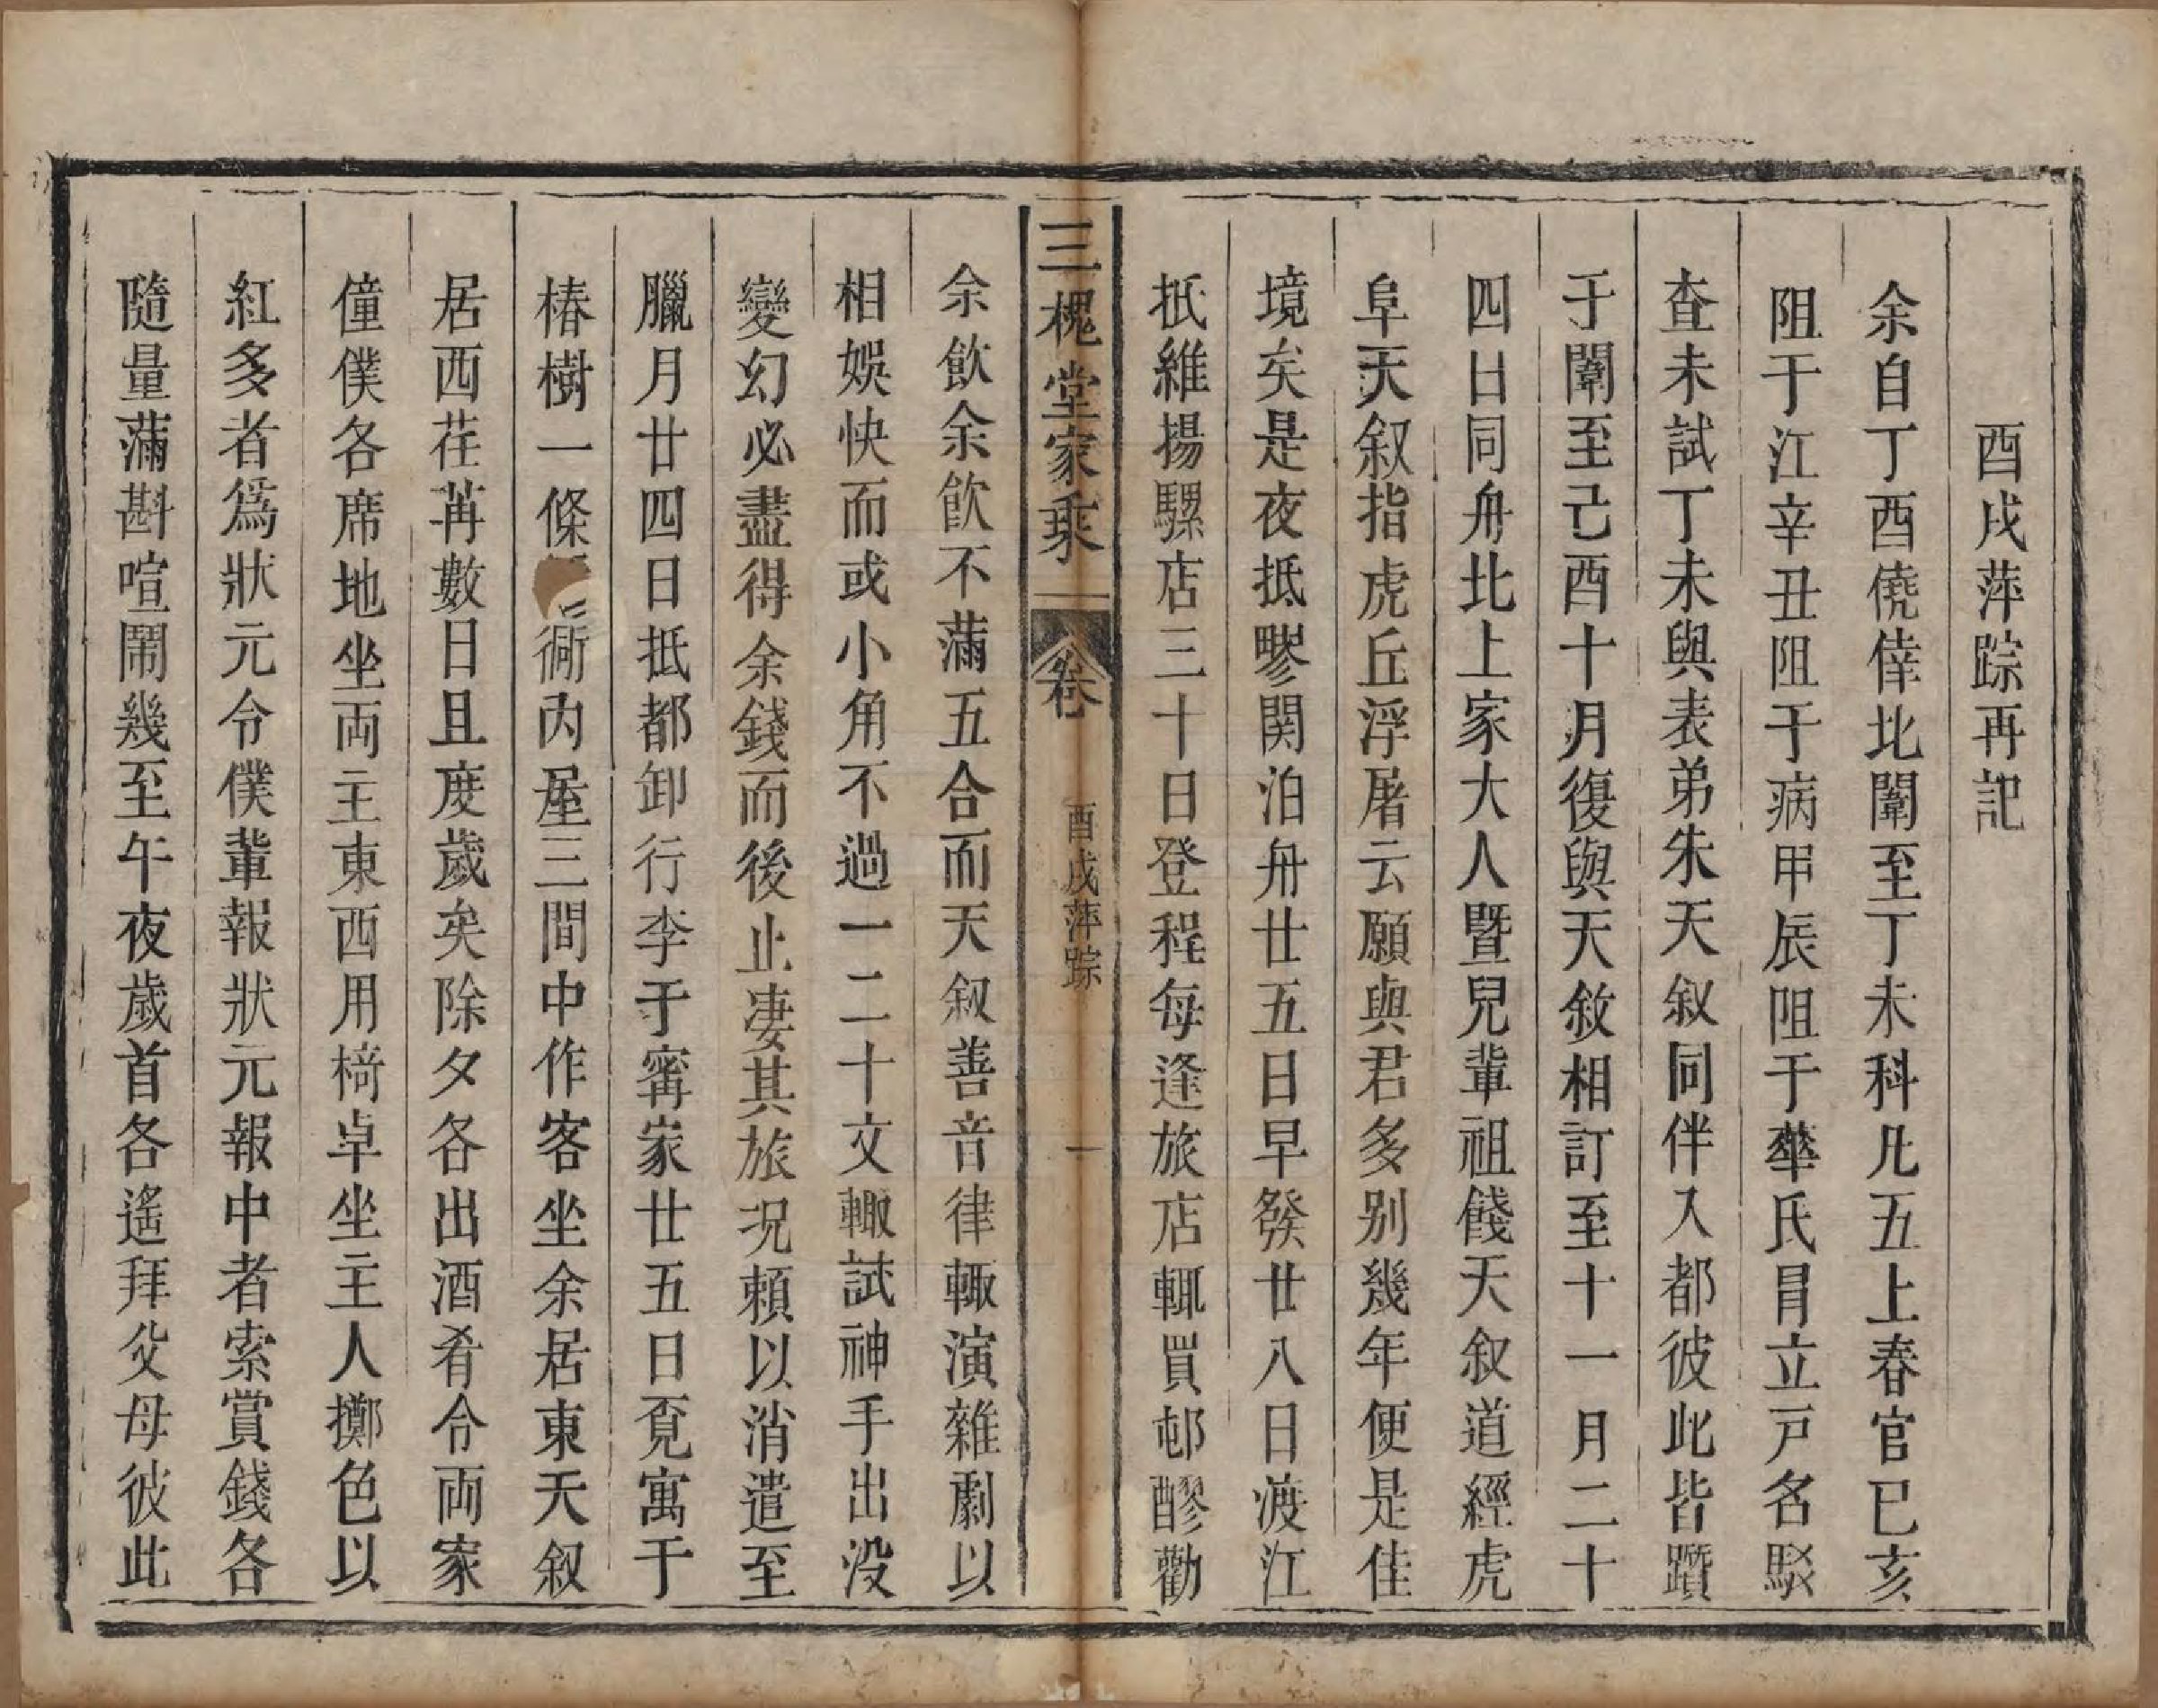 酉戌萍踪再記
余自丁酉僥倖北闈至丁未科凡五上春官已亥
阻于江辛丑阻于病甲辰阻于華氏冐立戸名駁
查未試丁未與表弟朱天叙同伴入都彼此皆躓
于闈至己酉十月復與天敘相訂至十一月二十
四日同舟北上家大人暨兒輩祖餞天叙道經虎
阜天叙指虎丘浮屠云願與君多别幾年便是佳
境矣是夜抵墅関泊舟廿五日早發廿八日渡江
抵維揚騾店三十日登程每逢旅店輒買邨醪勸
三槐堂家乘
卷
酉戌萍踪
一
余飲余飲不滿五合而天叙善音律輙演雜劇以
相娛快而或小角不過一二十文輙試神手出没
變幻必盡得余錢而後止凄其旅况頼以消遣至
臘月廿四日抵都卸行李于寗家廿五日覔寓于
椿樹一條衚内屋三間中作客坐余居東天叙
居西荏苒數日且度歲矣除夕各出酒肴令両家
僮僕各席地坐両主東西用椅卓坐主人擲色以
紅多者爲狀元令僕輩報狀元報中者索賞錢各
隨量滿斟喧鬧幾至午夜歲首各遙拜父母彼此